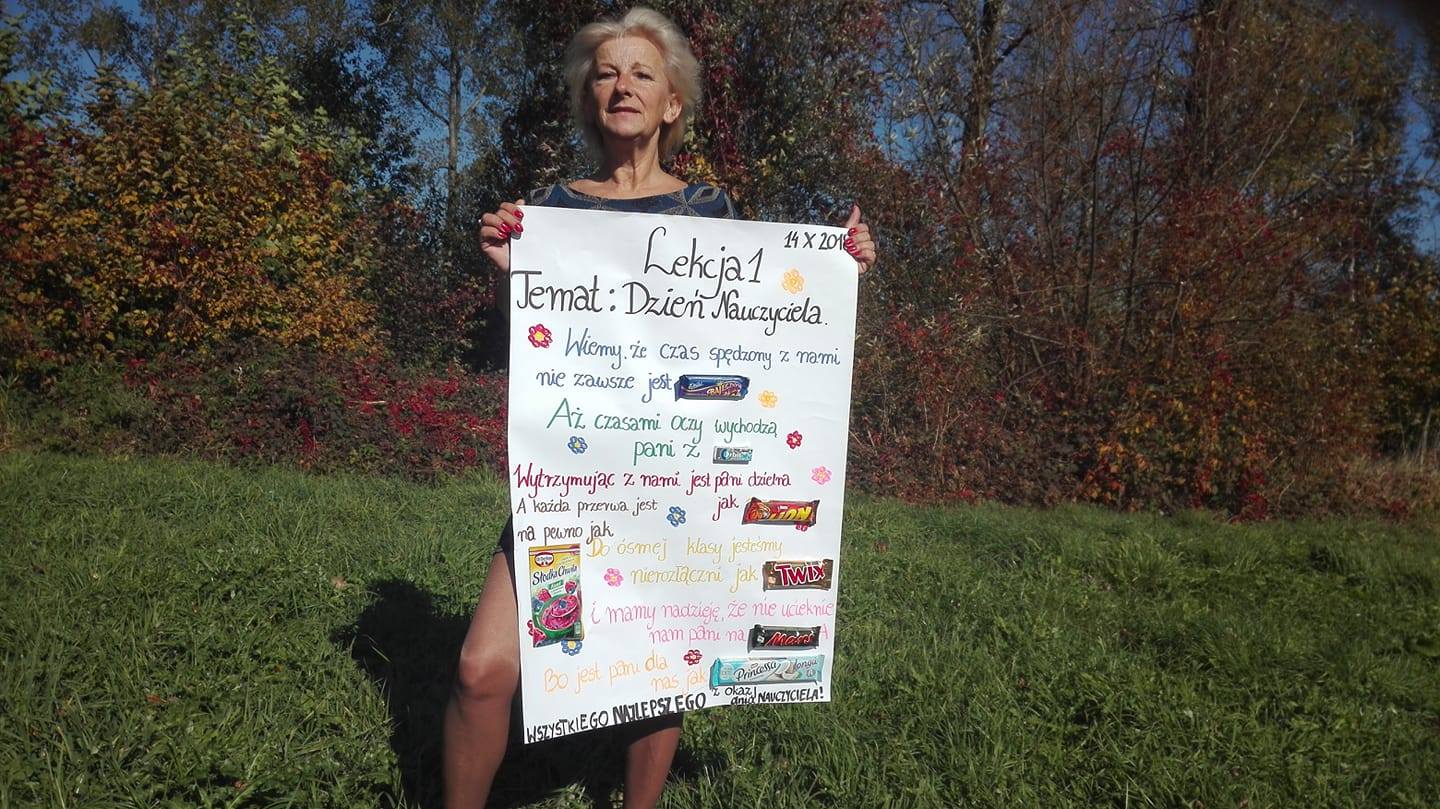 14 X 201
Lekcja 1
Temat: Dzień Nauczyciela.
Wiemy, że czas spędzony z nami
nie zawsze jest
Aż czasami oczy wychodzą
pani z Orbit
Wytrzymując z nami jest pani dzielna
jak LION
A każda przerwa jest
na pewno jak
Dr. Oetker
Słodka Chwila
Do ósmej klasy jesteśmy
nierozłączni jak TWIX
i mamy nadzieję, że nie ucieknie
nam pani na Mars A
Bo jest pani dla
nas jak Princessa longa
WSZYSTKIEGO NAJLEPSZEGO z okazj
dnia NAUCZYCIELA!